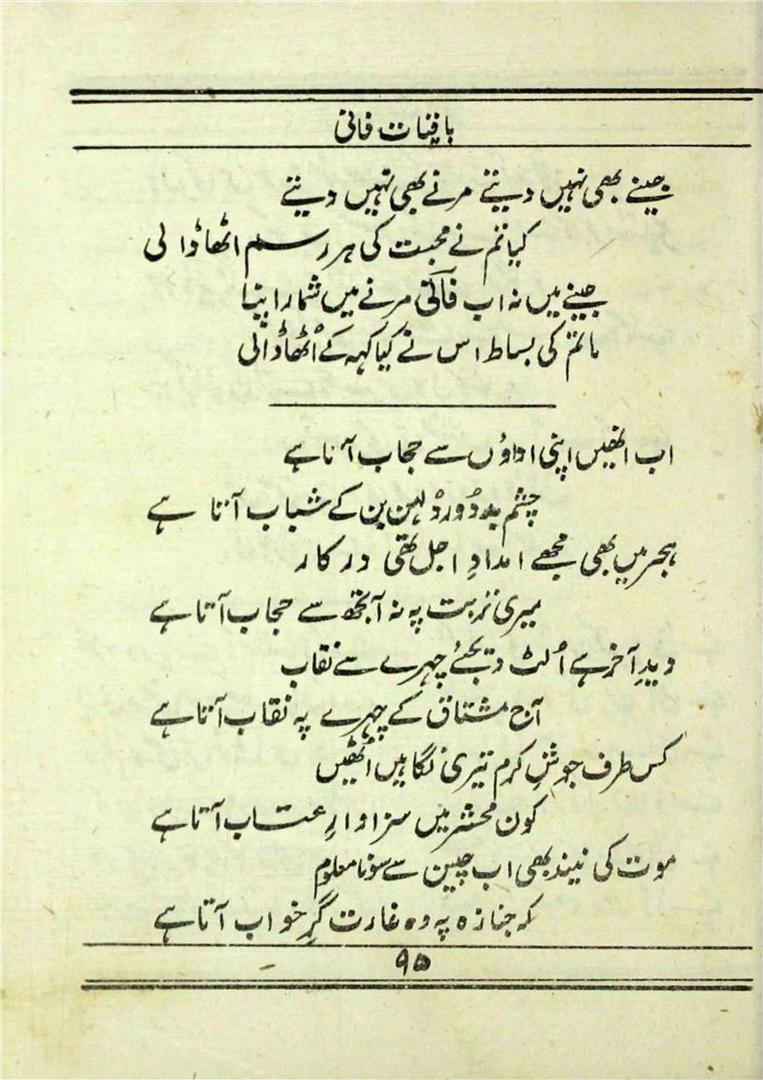 باقیات فانی
جینے بھی نہیں دیتے مرنے بھی نہیں دیتے
کیا تم نے محبت کی ہر رسم اٹھا ڈالی
جینے میں نہ اب فانیؔ مرنے میں شمار اپنا
ماتم کی بساط اس نے کیا کہہ کے اُٹھا ڈالی
اب انھیں اپنی اداؤں سے حجاب آتا ہے
چشم بد دُور دُلہن بن کے شباب آتا ہے
ہجر میں بھی مجھے امدادِ اجل تھی درکار
میری تربت پہ نہ آ تجھ سے حجاب آتا ہے
دیدِ آخر ہے اُلٹ دیجئے چہرے سے نقاب
آج مشتاق کے چہرے پہ نقاب آتا ہے
کس طرف جوشِ کرم تیری نگاہیں اٹھیں
کون محشر میں سزاوارِ عتاب آتا ہے
موت کی نیند بھی اب چین سے سونا معلوم
کہ جنازہ پہ وہ غارت گرِ خواب آتا ہے
۹۵